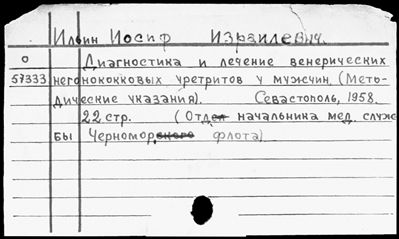 Ильин Иосиф Изразилевич.
О Диагностика и лечение венерических
57333 негонококковых уретритов у мужчин. (Мето-
дические указания). Севастополь, 1958.
22 стр. (Отдел начальника мед. служ
бы Черноморского флота)